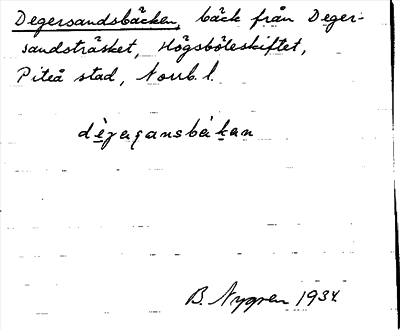 Degersandsbäcken, bäck från Deger-
sandsträsket, Högsböleskiftet,
Piteå stad, Norrb. l.
B. Nygren 1934